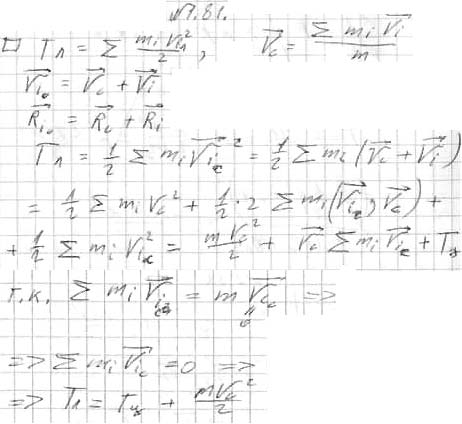 №1.81.
□ Tл = ∑ mᵢVᵢл²/2, V⃗c = ∑ mᵢV⃗ᵢ/m
V⃗ᵢₒ = V⃗c + V⃗ᵢ
R⃗ᵢₒ = R⃗c + R⃗ᵢ
Tл = 1/2 ∑ mᵢV⃗ᵢc² = 1/2 ∑ mᵢ(V⃗c + V⃗ᵢ)
= 1/2 ∑ mᵢVc² + 1/2·2 ∑ mᵢ(V⃗ᵢc, V⃗c) +
+ 1/2 ∑ mᵢVᵢc² = mVc²/2 + V⃗c ∑ mᵢV⃗ᵢc + Tц
т.к. ∑ mᵢV⃗ᵢc = mV⃗cc =>
=> ∑ mᵢV⃗ᵢc = 0 =>
=> Tл = Tц + mVc²/2